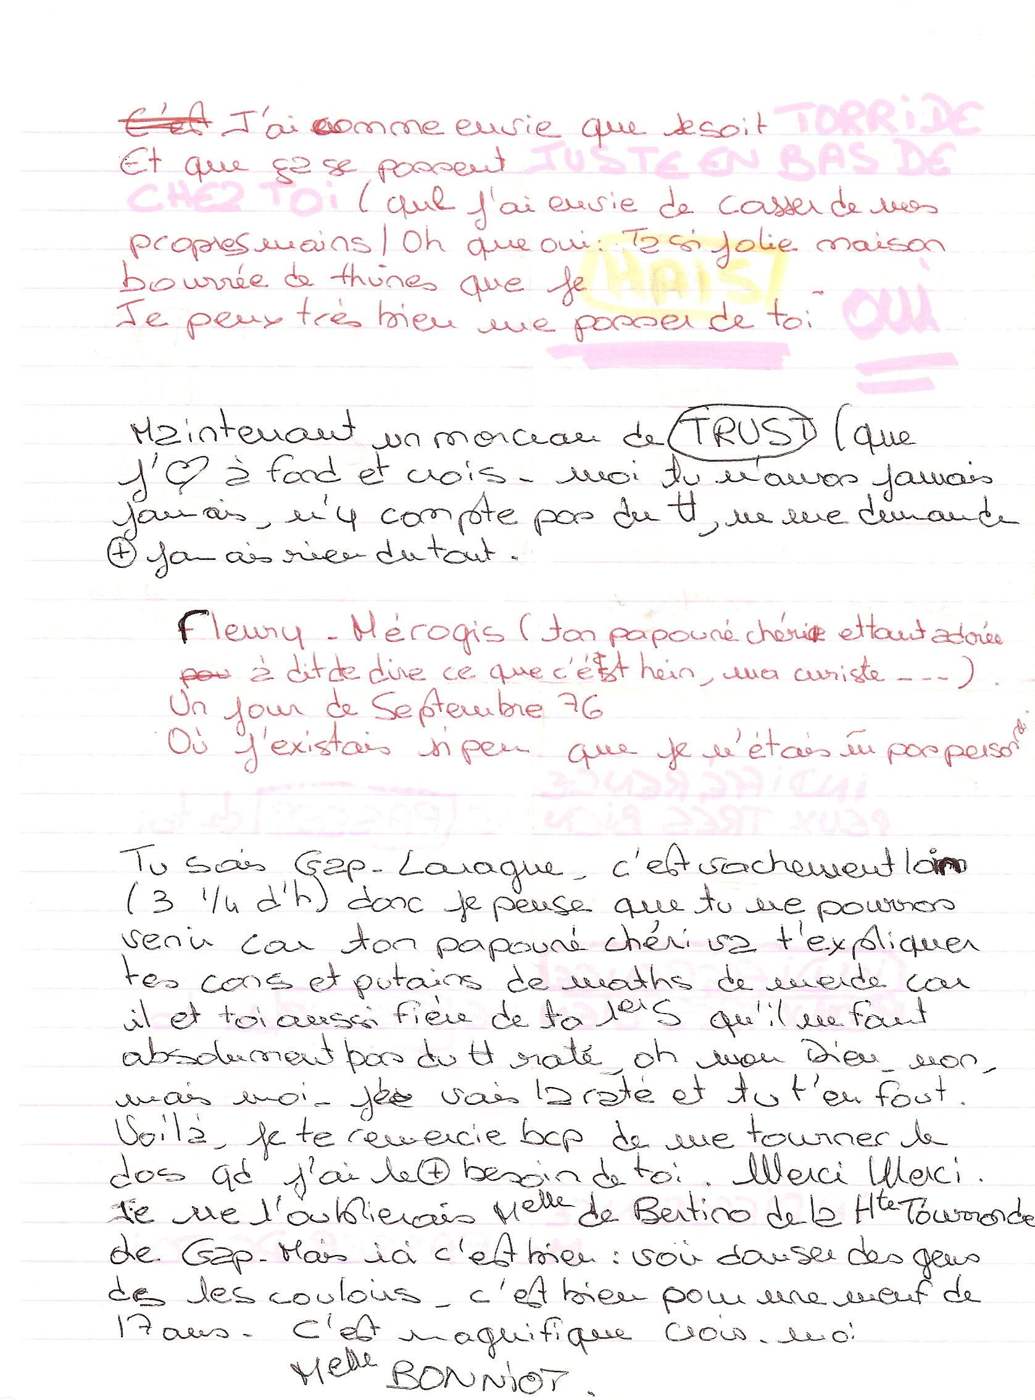 C'est J'ai comme envie que se soit TORRIDE
Et que ça se passent JUSTE EN BAS DE
CHEZ TOi (que j'ai envie de casser de mes
propres mains) Oh que oui : Ta si jolie maison
bourrée de thunes que je HAIS
Je peux très bien me passer de toi OUi
Maintenant un morceau de TRUST (que
j'♡ à fond et crois-moi tu n'auras jamais
jamais, n'y compte pas du tt, ne me demande
⊕ jamais rien du tout.
Fleury-Mérogis (ton papouné chérie et tant adorée
pou à dit de dire ce que c'ést hein, ma curiste ---).
Un jour de Septembre 76
Où j'existais si peu que je n'étais mm pas person
INDIFFÉRENCE
PEUX TRÈS BIEN PASSER de toi
Tu sais Gap-Laragne, c'est vachement loin
(3 1/4 d'h) donc je pense que tu ne pourras
venir car ton papouné chéri va t'expliquer
tes cons et putains de maths de merde car
il et toi aussi fière de ta 1eiS qu'il ne faut
absolument pas du tt raté, oh mon Dieu, non,
mais moi - je vais la raté et tu t'en fout.
Voilà, je te remercie bcp de me tourner le
dos qd j'ai le ⊕ besoin de toi. Merci Merci.
Je ne l'oublierais Melle de Bertino de la Hte Tourronde
de Gap. Mais ici c'est bien : voir danser des gens
ds les couloirs - c'est bien pour une meuf de
17 ans. C'est magnifique crois-moi
Melle BONNIOT.